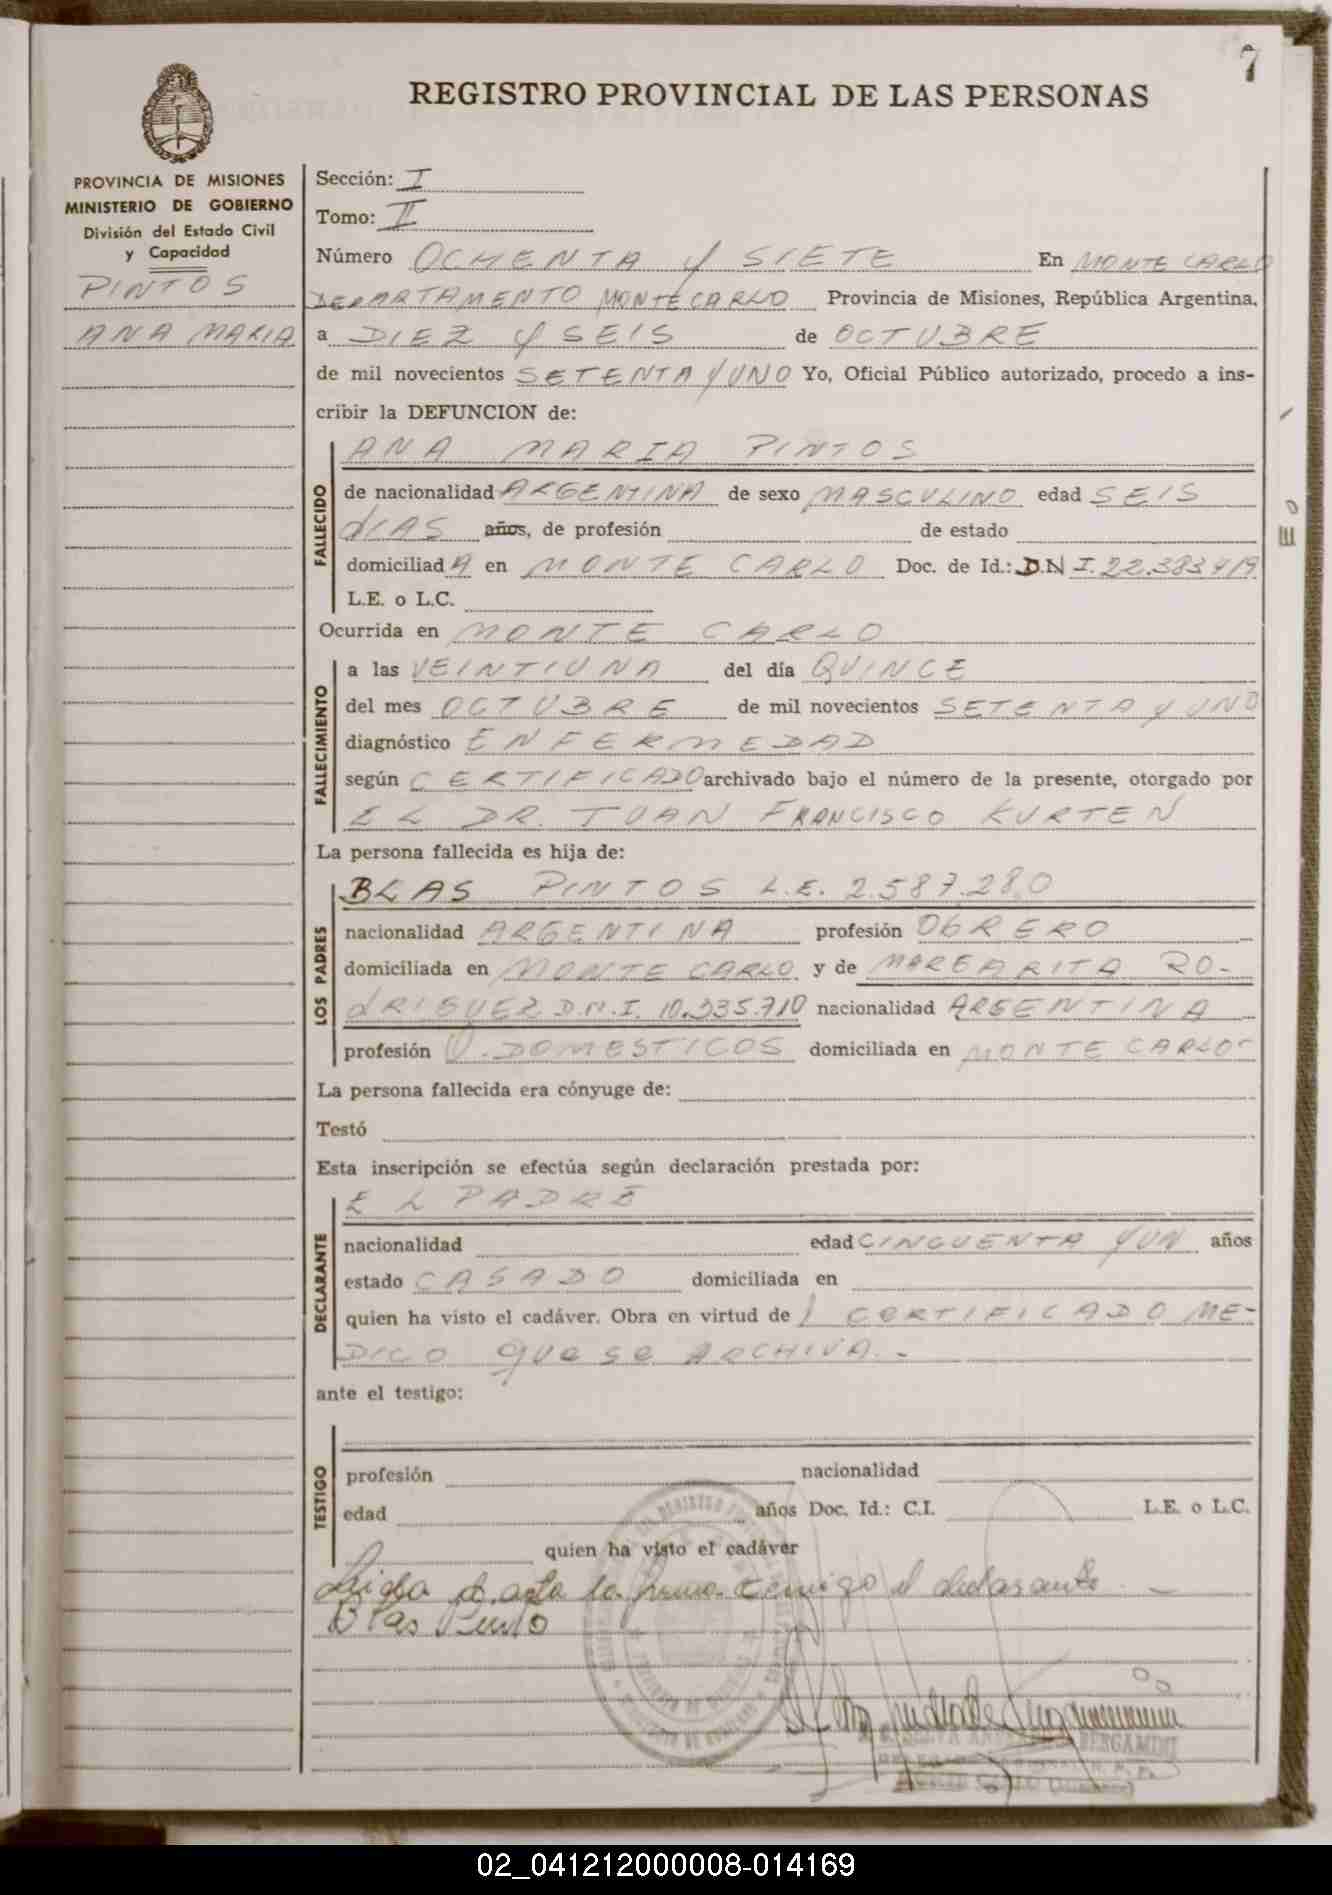 7
REGISTRO PROVINCIAL DE LAS PERSONAS
PROVINCIA DE MISIONES
MINISTERIO DE GOBIERNO
División del Estado Civil
y Capacidad
PINTOS
ANA MARIA
Sección: I
Tomo: II
Número OCHENTA y SIETE En MONTE CARLO
DEPARTAMENTO MONTECARLO Provincia de Misiones, República Argentina,
a DIEZ y SEIS de OCTUBRE
de mil novecientos SETENTA y UNO Yo, Oficial Público autorizado, procedo a ins-
cribir la DEFUNCION de:
FALLECIDO
ANA MARIA PINTOS
de nacionalidad ARGENTINA de sexo MASCULINO edad SEIS
dIAS años, de profesión de estado
domiciliad A en MONTE CARLO Doc. de Id.: D.N I. 22.383.419
L.E. o L.C.
Ocurrida en MONTE CARLO
FALLECIMIENTO
a las VEINTIUNA del día QUINCE
del mes OCTUBRE de mil novecientos SETENTA y UNO
diagnóstico ENFERMEDAD
según CERTIFICADO archivado bajo el número de la presente, otorgado por
EL DR. JUAN FRANCISCO KURTEN
La persona fallecida es hija de:
LOS PADRES
BLAS PINTOS L.E. 2.587.280
nacionalidad ARGENTINA profesión ObRERO
domiciliada en MONTE CARLO y de MARGARITA RO-
dRIGUEZ D.N.I. 10.335.710 nacionalidad ARGENTINA
profesión Q. DOMESTICOS domiciliada en MONTE CARLO-
La persona fallecida era cónyuge de:
Testó
Esta inscripción se efectúa según declaración prestada por:
DECLARANTE
EL PADRE
nacionalidad edad CINCUENTA y UN años
estado CASADO domiciliada en
quien ha visto el cadáver. Obra en virtud de 1 CERTIFICADO ME-
DICO que se ARCHIVA.-
ante el testigo:
TESTIGO
profesión nacionalidad
edad años Doc. Id.: C.I. L.E. o L.C.
quien ha visto el cadáver
Leida el acta la firma conmigo el declarante. —
Blas Pinto
BERGAMINI
02_041212000008-014169